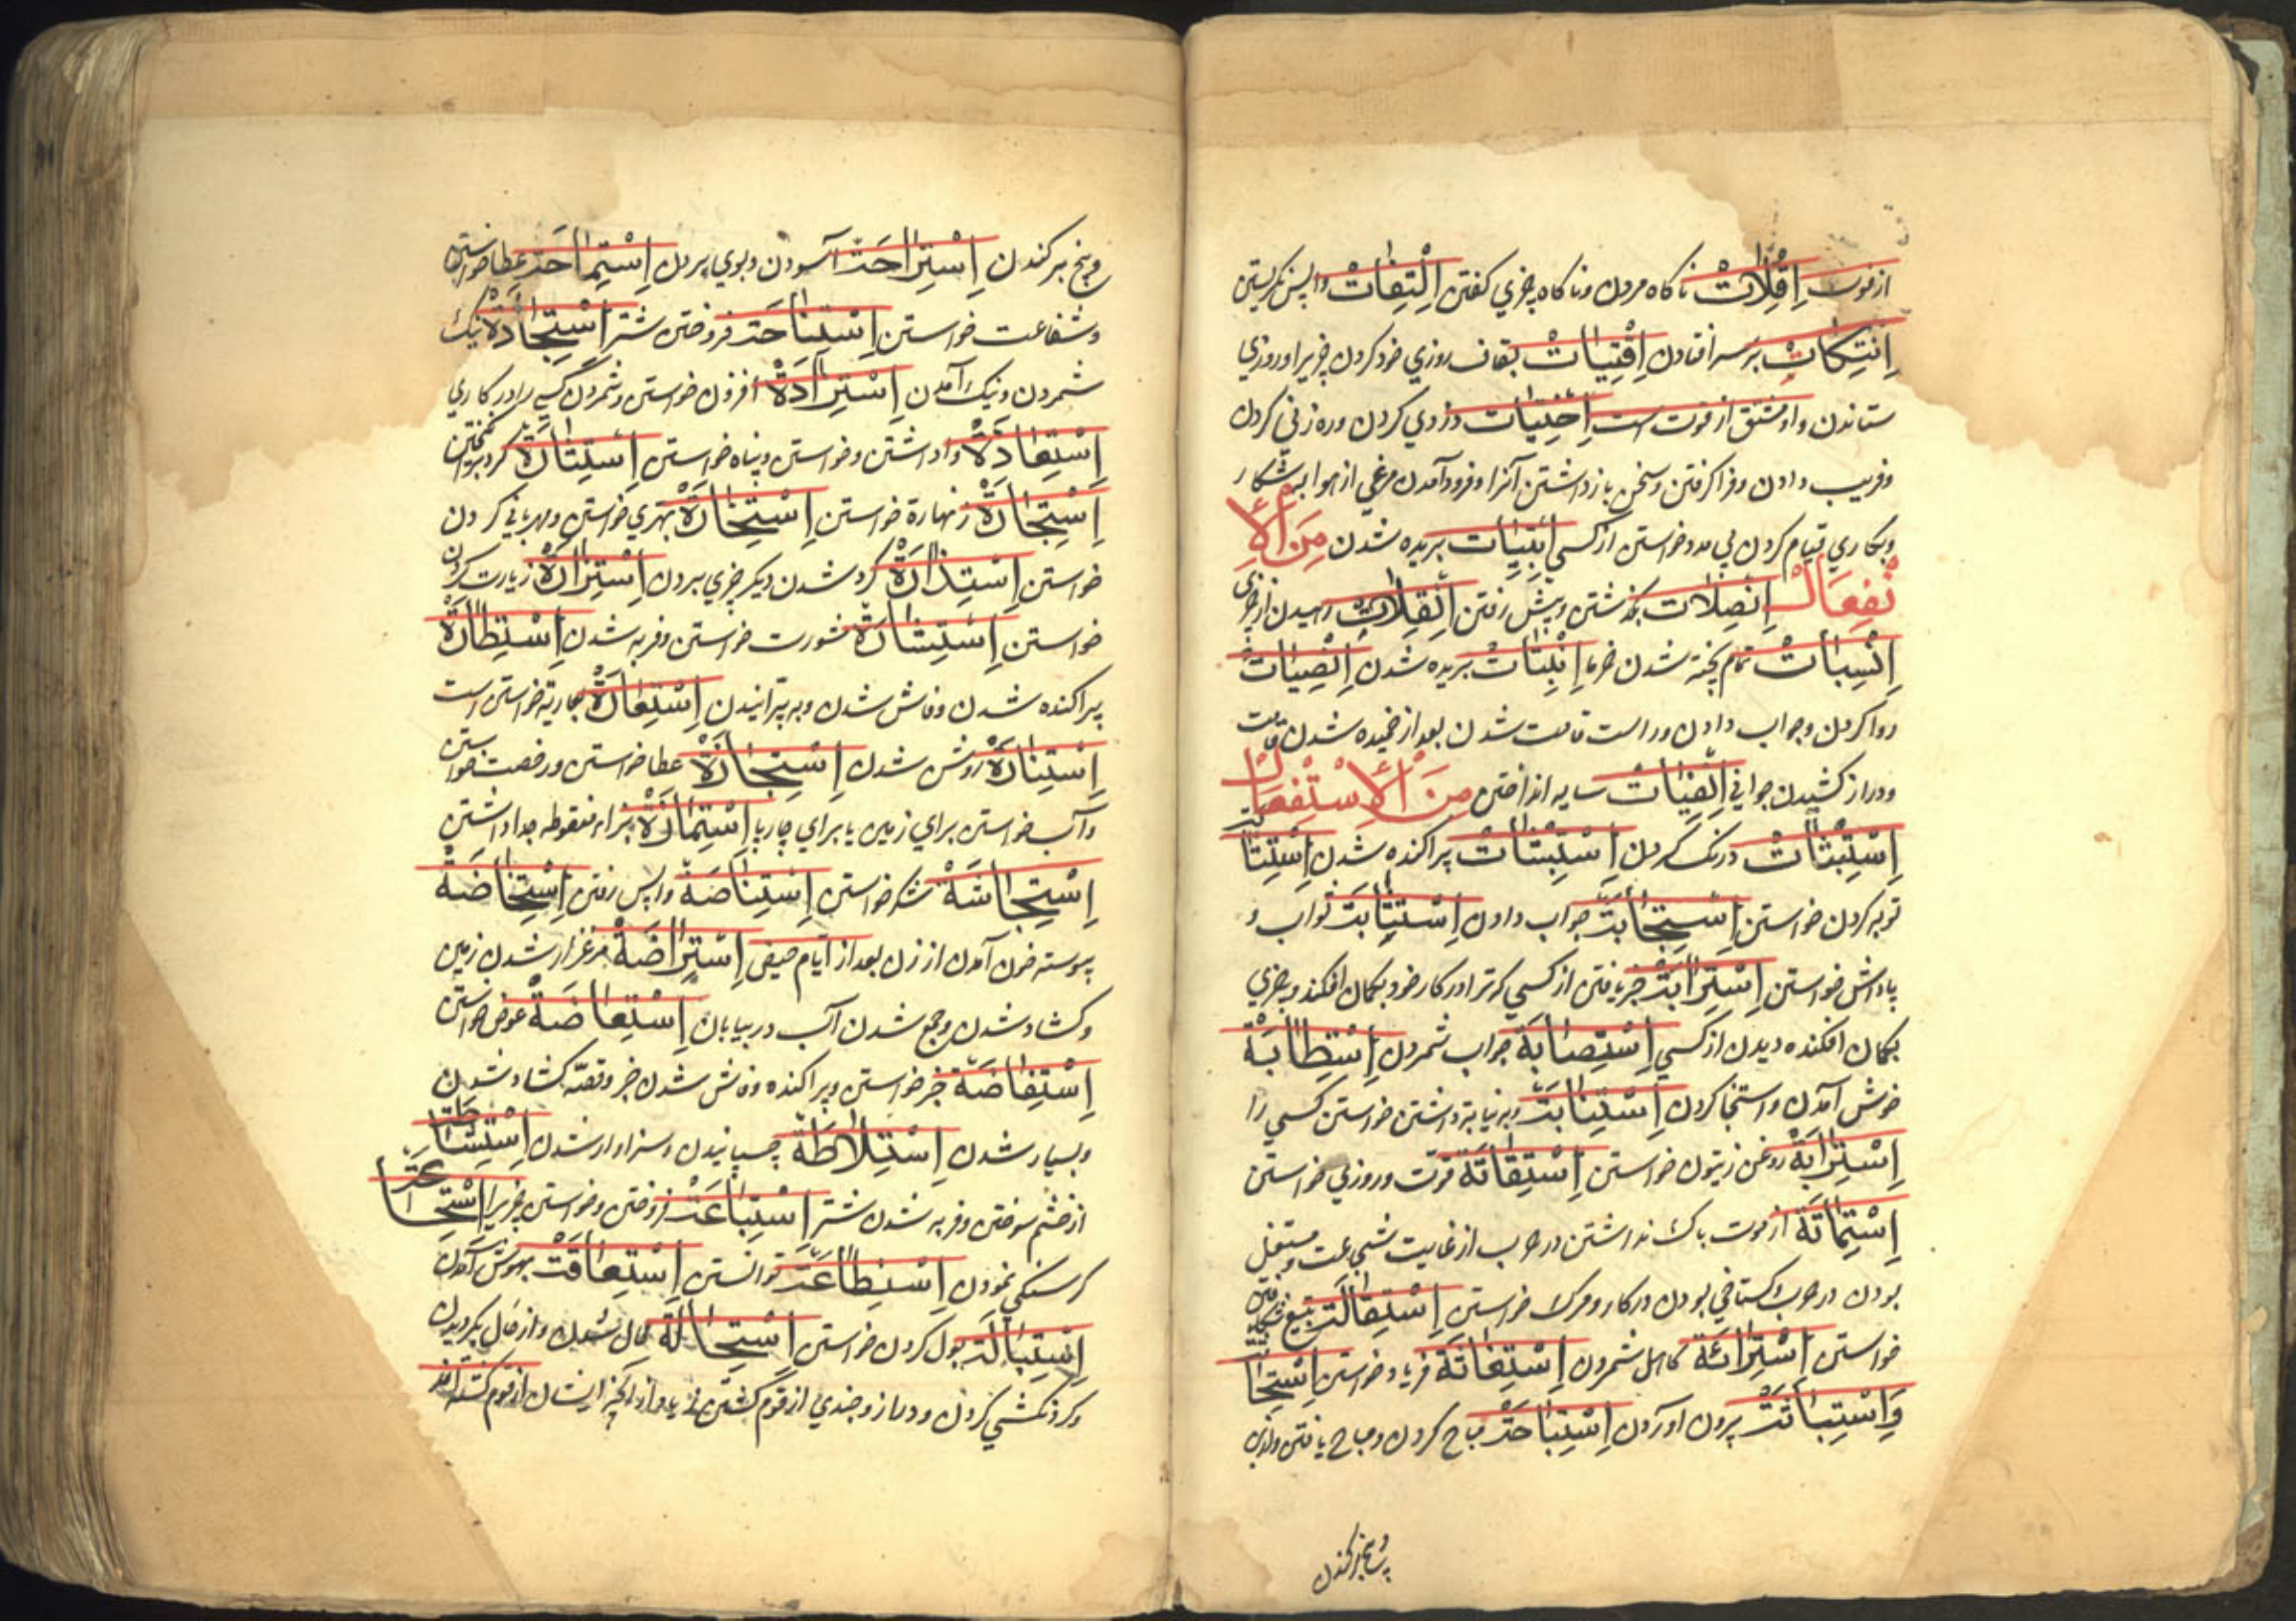 از فوت اِفْتِلَاتْ ناکاه مردن و ناکاه چیزي کفتن اِلْتِفَاتْ واپس نکریستن
اِنْتِكَاتْ بر سر افتادن اِقْتِيَاتْ بقاف روزي خود کردن چیزیرا و روزي
ستاندن و او مشتق از قوت است اِخْتِيَاتْ دزدي کردن و ره زني کردن
و فریب دادن و فرا کرفتن و سخن باز داشتن آنرا و فرود آمدن مرغي از هوا به شکار
و بکاري قیام کردن بي مدد خواستن از کسي اِنْبِتَاتْ بریده شدن مِنَ الْاِ
نْفِعَال اِنْصِلَاتْ بکذشتن و پیش رفتن اِنْفِلَاتْ رهیدن از چیزي
اِنْسِبَاتْ تمام پخته شدن خرما اِنْبِتَاتْ بریده شدن اِنْصِيَاتْ
روا کردن و جواب دادن و راست قامت شدن بعد از خمیده شدن قامت
و دراز کشیدن جواني سایه انداختن مِنَ الْاِسْتِفْعَال
درنک کردن پراکنده شدن اِسْتِتَا
توبه کردن خواستن اِسْتِجَابَتْ جواب دادن اِسْتِثَابَتْ ثواب و
پاداش خواستن اِسْتِرَابَتْ خبر یافتن از کسي که ترا در کار خود بکمان افکند و چیزي
بکمان افکنده دیدن از کسي اِسْتِصَابَةْ جواب شمردن اِسْتِطَابَةْ
خوش آمدن و استنجا کردن اِسْتِنَابَتْ و به نیابة داشتن خواستن کسي را
روغن زیتون خواستن اِسْتِقَاتَةْ قوت و روزي خواستن
اِسْتِمَاتَةْ از موت باک نداشتن در حرب از غایت شجاعت و مستقل
بودن در حرب و کستاخي بودن در کار و مرک خواستن
خواستن اِسْتِرَاثَةْ کاهل شمردن اِسْتِغَاثَةْ فریاد خواستن
بیرون آوردن اِسْتِبَاحَتْ مباح کردن و مباح یافتن
و بیخ برکندن
و بیخ برکندن اِسْتِرَاحَتْ آسودن و بوي بردن اِسْتِمَاحَتْ عطا خواستن
و شفاعت خواستن اِسْتِنَاحَتْ فروختن شتر اِسْتِجَادَةْ نیک
شمردن و نیک آمدن اِسْتِزَادَةْ افزون خواستن و شمردن کسي را در کاري
اِسْتِعَاذَةْ واداشتن و خواستن و پناه خواستن
اِسْتِجَارَةْ زنهاره خواستن اِسْتِخَارَةْ بهتري خواستن و مهرباني کردن
خواستن اِسْتِدَارَةْ کرد شدن دیکر چیزي بردن اِسْتِزَارَةْ زیارت کردن
خواستن اِسْتِشَارَةْ مشورت خواستن و فربه شدن اِسْتِطَارَةْ
پراکنده شدن و فاش شدن و به پرانیدن اِسْتِعَارَةْ بعاریة خواستن است
اِسْتِنَارَةْ روشن شدن اِسْتِجَازَةْ عطا خواستن و رخصت خواستن
و آب خواستن براي زمین یا براي چارپا اِسْتِمَازَةْ بزاء منقوطه جدا داشتن
اِسْتِجَاشَةْ لشکر خواستن اِسْتِنَاصَةْ واپس رفتن اِسْتِحَاضَةْ
پیوسته خون آمدن از زن بعد از ایام حیض اِسْتِرَاضَةْ مرغزار شدن زمین
و کشاد شدن و جمع شدن آب در بیابان اِسْتِعَاضَةْ عوض خواستن
اِسْتِفَاضَةْ خبر خواستن و پراکنده و فاش شدن خبر و قصّه کشاد شدن
و بسیار شدن اِسْتِلَاطَةْ چسپانیدن و سزاوار شدن اِسْتِشَاطَة
از خشم سوختن و فربه شدن شتر اِسْتِبَاعَتْ فروختن و خواستن چیزیرا اِسْتِجَاعَة
کرسنکي نمودن اِسْتِطَاعَتْ توانستن بهوش آمدن
اِسْتِبَالَتْ بول کردن خواستن اِسْتِحَالَةْ محال شدن و از حال بکردیدن